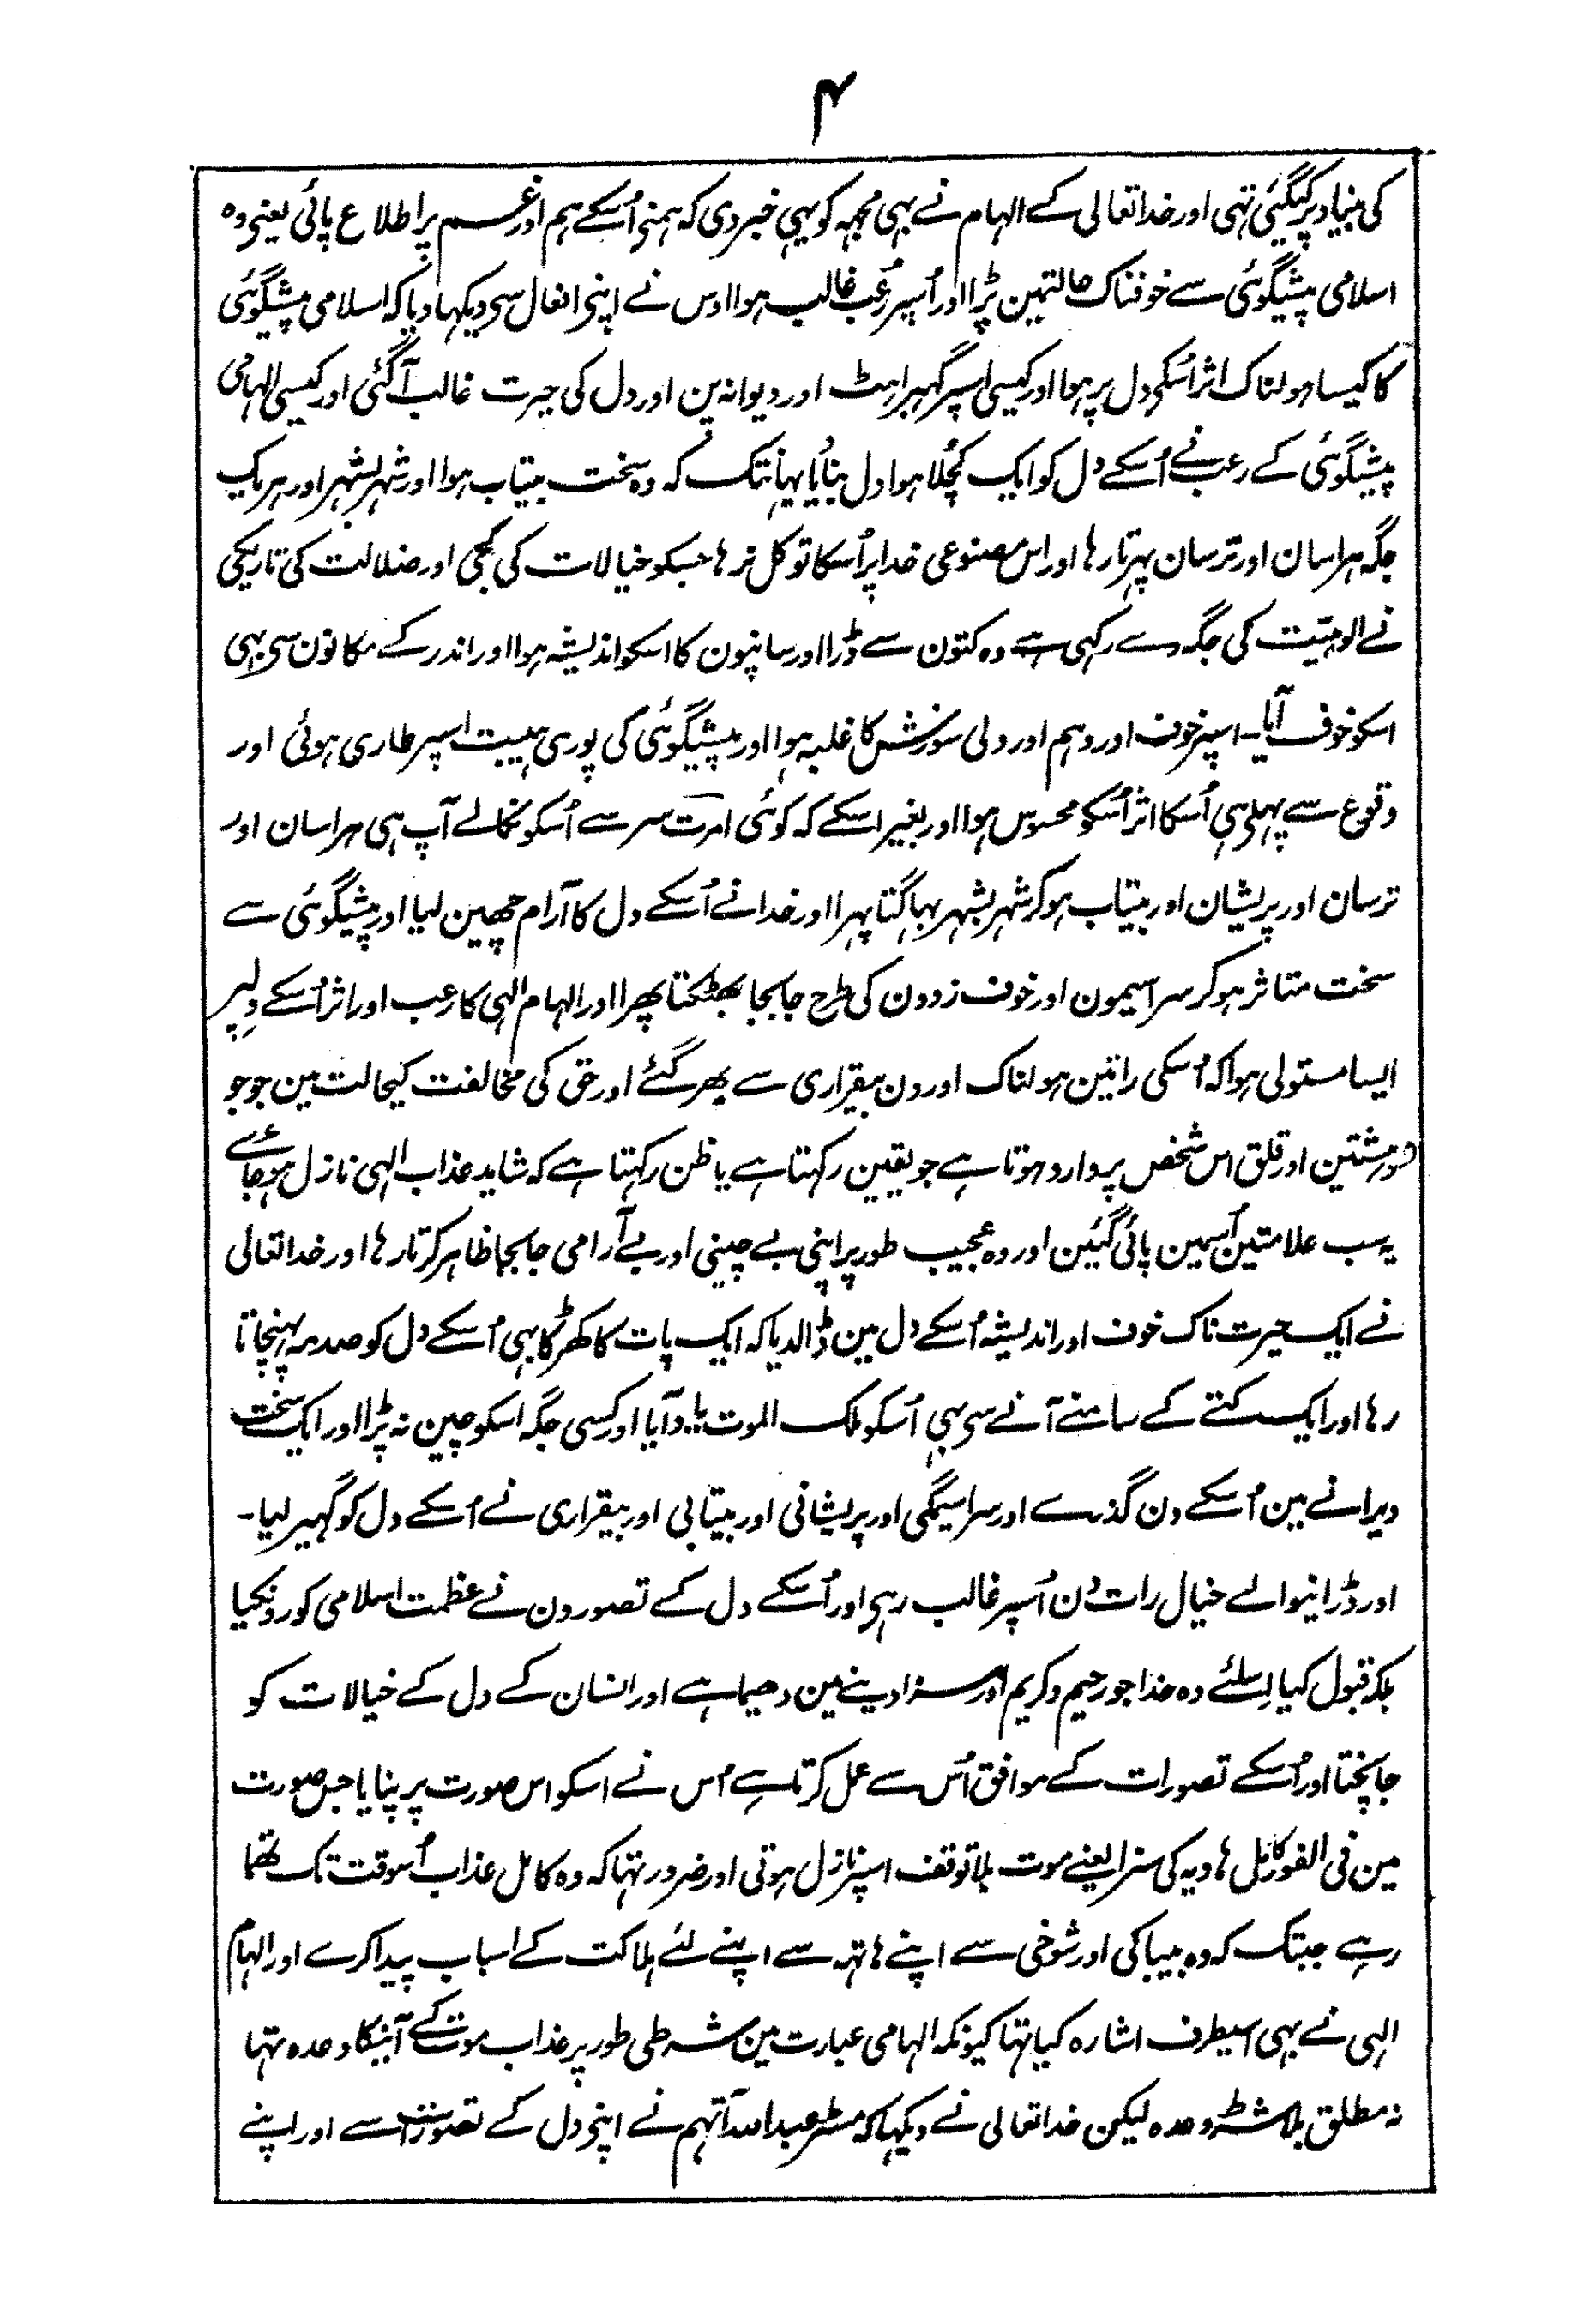 ۴
کی بنیاد پر کیگئی تہی اور خدا تعالی کے الہام نے بہی مجہہ کو یہی خبر دی کہ ہمنے اُسکے ہم اور غم پر اطلاع پائی یعنی وہ
اسلامی پیشگوئی سے خوفناک حالتمین پڑا اور اُسپر رُعب غالب ہوا اوس نے اپنی افعال سی دیکہا دیا کہ اسلامی پیشگوئی
کا کیسا ہولناک اثر اُسکی دل پر ہوا اور کیسی اسپر گہبراہٹ اور دیوانہ پن اور دل کی حیرت غالب آگئی اور کیسی الہامی
پیشگوئی کے رعب نے اُسکے دل کو ایک کُچلا ہوا دل بنایا یہانتک کہ وہ سخت بیتاب ہوا اور شہر بشہر اور ہر یک
جگہ ہراسان اور ترسان پہرتا رہا اور اس مصنوعی خدا پر اُسکا توکل نرہا جسکو خیالات کی کجی اور ضلالت کی تاریکی
نے الوہیّت کی جگہ دے رکہی ہے وہ کتون سے ڈرا اور سانپون کا اسکو اندیشہ ہوا اور اندر کے مکانون سی بہی
اسکو خوف آیا۔ اسپر خوف اور وہم اور دلی سوزش کا غلبہ ہوا اور پیشگوئی کی پوری ہیبت اسپر طاری ہوئی اور
وقوع سے پہلے ہی اُسکا اثر اُسکو محسوس ہوا اور بغیر اسکے کہ کوئی امرت سر سے اُسکو نکالے آپ ہی ہراسان اور
ترسان اور پریشان اور بیتاب ہو کر شہر بشہر بہاگتا پہرا اور خدا نے اُسکے دل کا آرام چھین لیا اور پیشگوئی سے
سخت متاثر ہو کر سراسیمون اور خوف زدون کی طرح جابجا بھٹکتا پھرا اور الہام الہی کا رعب اور اثر اُسکے دلپر
ایسا مستولی ہوا کہ اُسکی راتین ہولناک اور دن بیقراری سے بھر گئے اور حق کی مخالفت کیحالت مین جو جو
دہشتین اور قلق اس شخص پر وارد ہوتا ہے جو یقین رکہتا ہے یا ظن رکہتا ہے کہ شاید عذاب الہی نازل ہوجائے
یہ سب علامتین اُسمین پائی گئین اور وہ عجیب طور پر اپنی بے چینی اور بے آرامی جابجا ظاہر کرتا رہا اور خدا تعالی
نے ایک حیرت ناک خوف اور اندیشہ اُسکے دل مین ڈالدیا کہ ایک پات کا کھڑکا بہی اُسکے دل کو صدمہ پہنچاتا
رہا اور ایک کتے کے سامنے آنے سی بہی اُسکو ملک الموت یاد آیا اور کسی جگہ اسکو چین نہ پڑا اور ایک سخت
ویرانے مین اُسکے دن گذرے اور سراسیمگی اور پریشانی اور بیتابی اور بیقراری نے اُسکے دل کو گہیر لیا۔
اور ڈرانیوالے خیال رات دن اُسپر غالب رہی اور اُسکے دل کے تصورون نے عظمت اسلامی کو رد نکیا
بلکہ قبول کیا اِسلئے وہ خدا جو رحیم و کریم اور سزا دینے مین دھیما ہے اور انسان کے دل کے خیالات کو
جانچتا اور اُسکے تصورات کے موافق اُس سے عمل کرتا ہے اُس نے اسکو اس صورت پر پنایا جس صورت
مین فی الفور کامل ہاویہ کی سزا یعنے موت بلا توقف اسپر نازل ہوتی اور ضرور تہا کہ وہ کامل عذاب اُسوقت تک تھما
رہے جبتک کہ وہ بیباکی اور شوخی سے اپنے ہاتہہ سے اپنے لئے ہلاکت کے اسباب پیدا کرے اور الہام
الہی نے بہی اسیطرف اشارہ کیا تہا کیونکہ الہامی عبارت مین شرطی طور پر عذاب موت کے آنیکا وعدہ تہا
نہ مطلق بلا شرط وعدہ لیکن خدا تعالی نے دیکہا کہ مسٹر عبداللہ آتہم نے اپنی دل کے تصورات سے اور اپنے